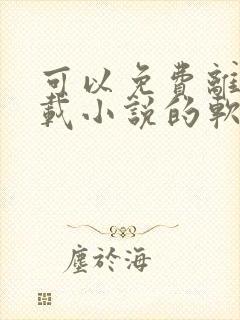 可以免費離
載小說的軟
塵於海